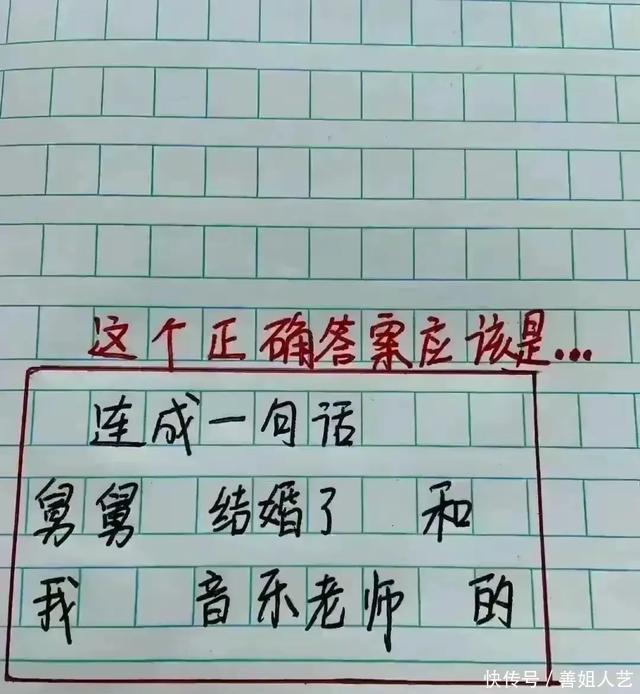 这个正确答案应该是...
连成一句话
舅舅 结婚了 和
我 音乐老师 的
快传号/善姐人艺